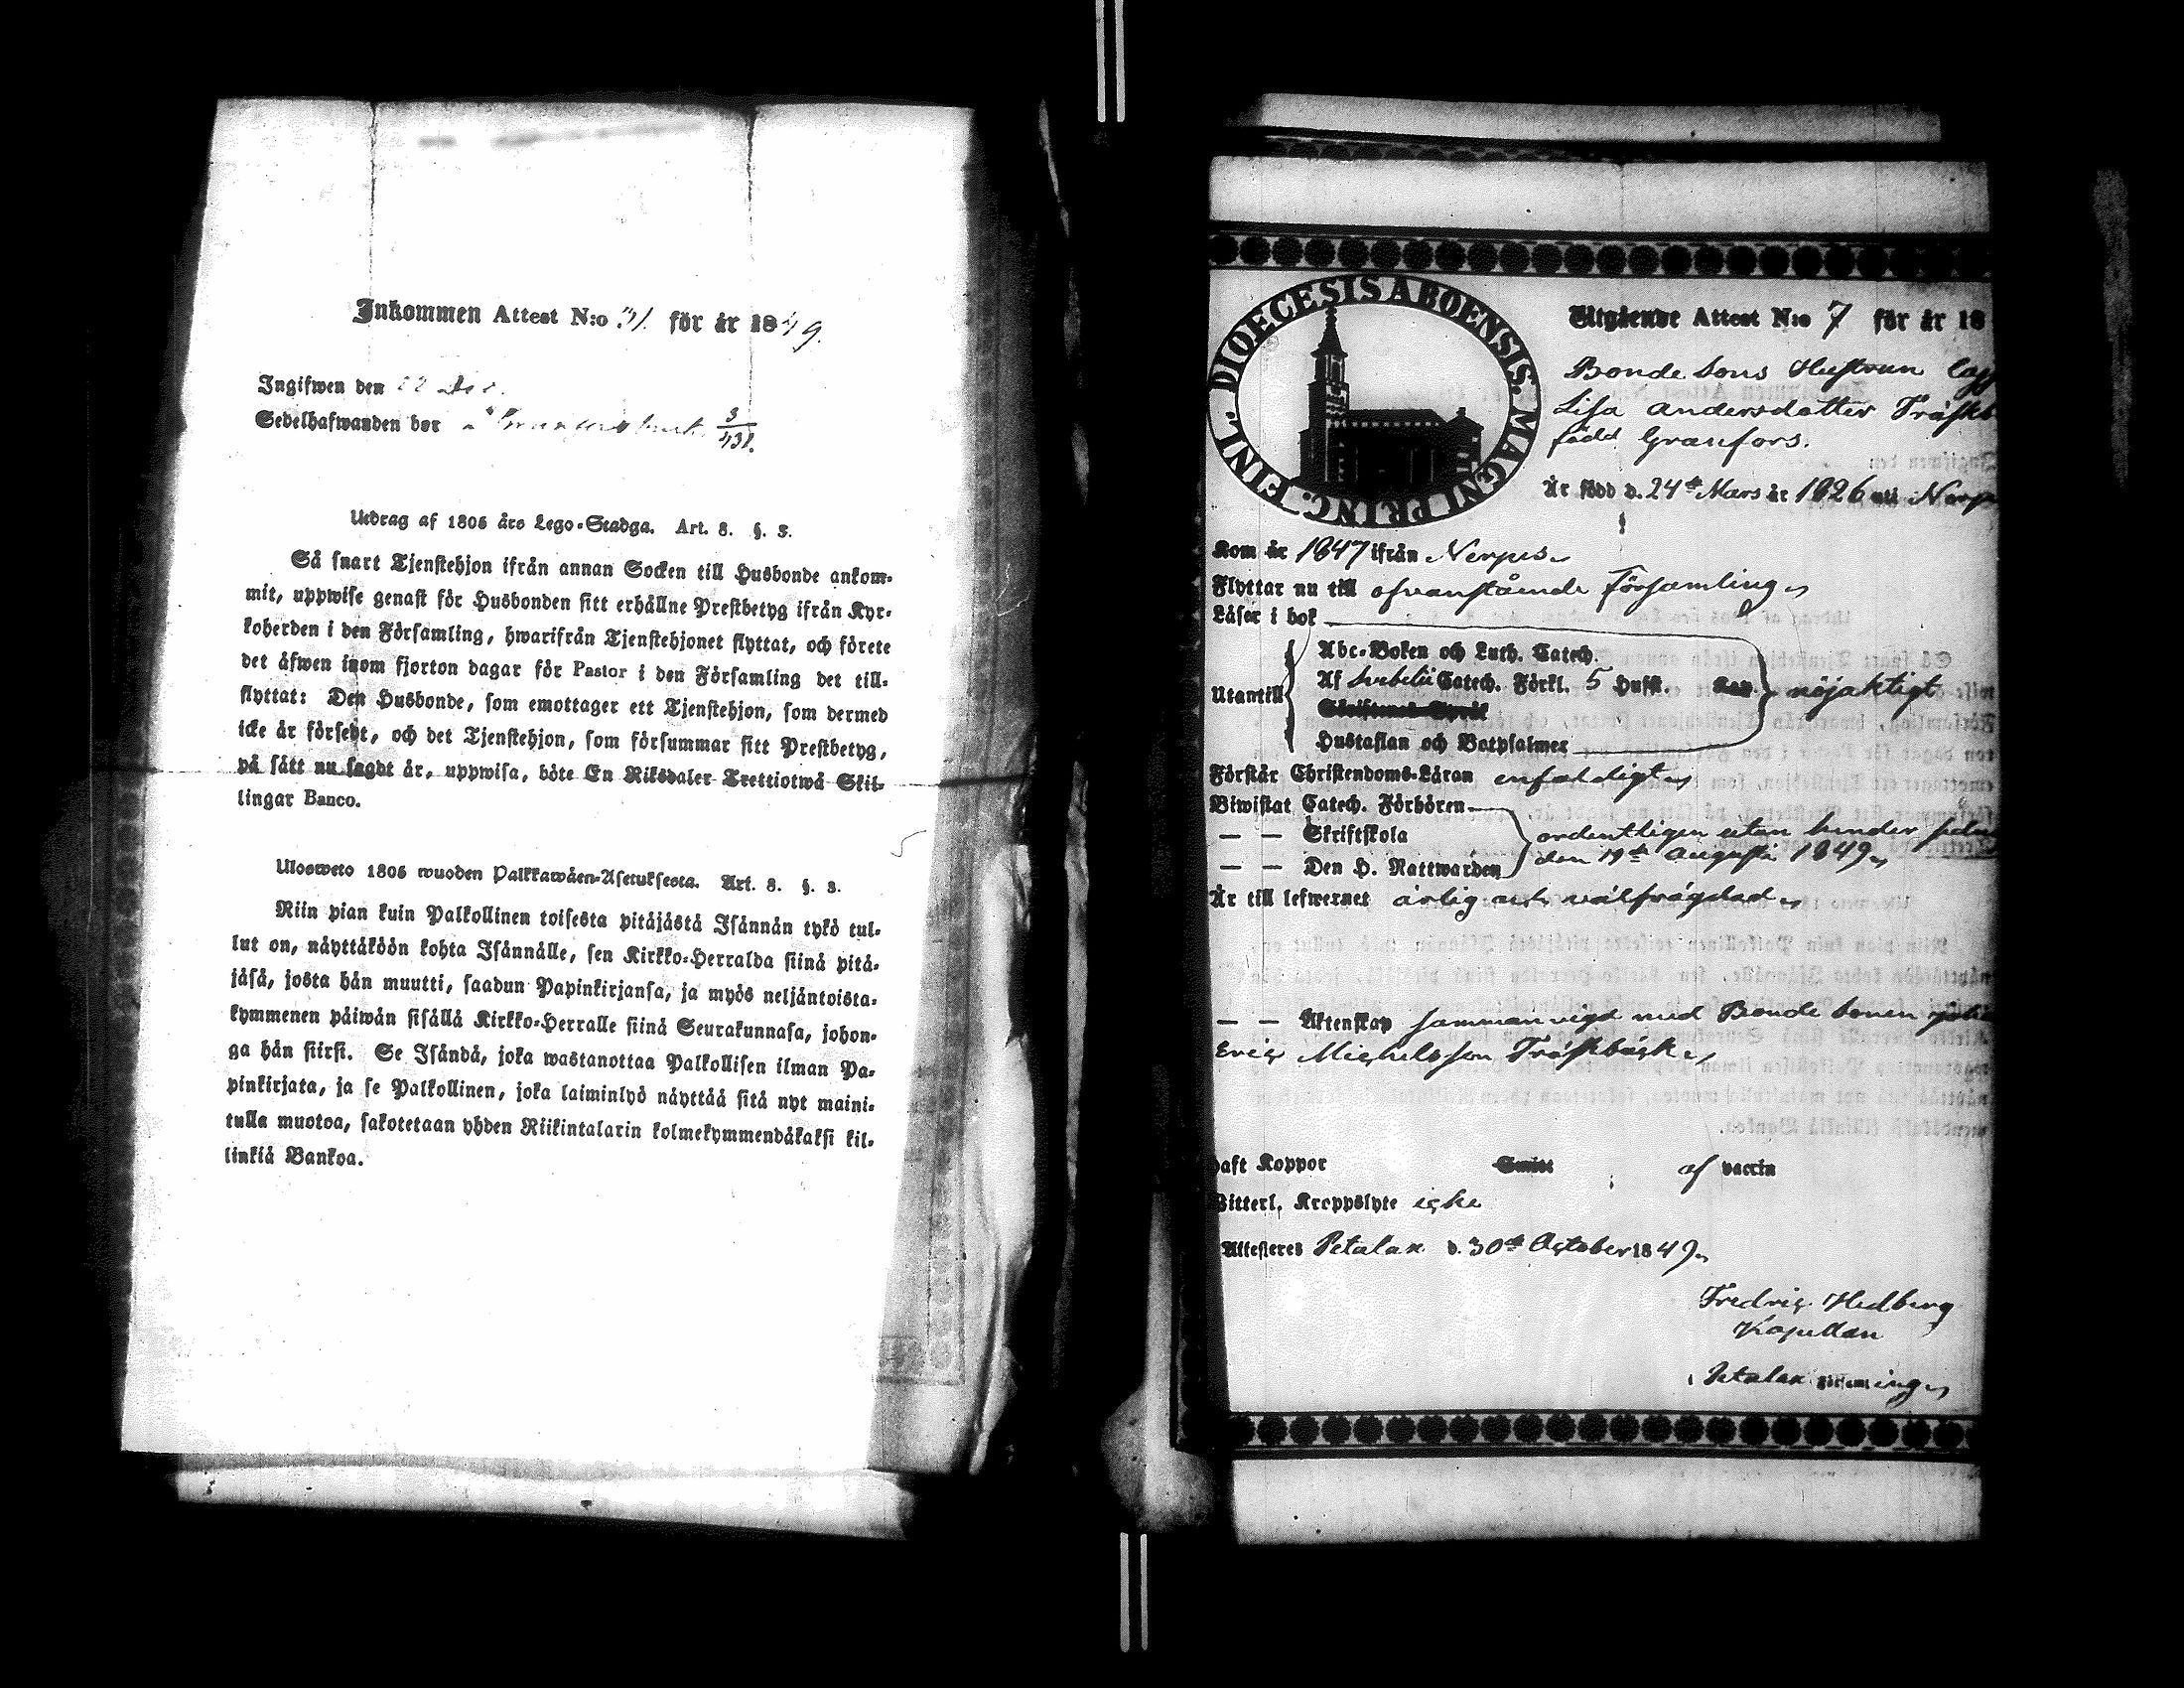 Inkommen Attest N:o 31. för år 1849.
Ingifwen den 22 Dec.
Sedelhafwanden bor å 3/431.
Utdrag af 1805 års Lego-Stadga. Art. 8. §. 3.
Så snart Tjenstehjon ifrån annan Socken till Husbonde ankom-
mit, uppwise genast för Husbonden sitt erhållne Prestbetyg ifrån Kyr-
koherden i den Församling, hwarifrån Tjenstehjonet flyttat, och förete
det äfwen inom fjorton dagar för Pastor i den Församling det till-
flyttat: Den Husbonde, som emottager ett Tjenstehjon, som dermed
icke är försedt, och det Tjenstehjon, som försummar sitt Prestbetyg,
på sätt nu sagdt är, uppwisa, böte En Riksdaler Trettiotwå Skil-
lingar Banco.
Ulosweto 1805 wuoden Palkkawäen-Asetuksesta. Art. 8. §. 3.
Niin pian kuin Palkollinen toisesta pitäjästä Isännän tykö tul-
lut on, näyttäköön kohta Isännälle, sen Kirkko-Herralda siinä pitä-
jäsä, josta hän muutti, saadun Papinkirjansa, ja myös neljäntoista-
kymmenen päiwän sisällä Kirkko-Herralle siinä Seurakunnasa, johon-
ga hän siirsi. Se Isändä, joka wastanottaa Palkollisen ilman Pa-
pinkirjata, ja se Palkollinen, joka laiminlyö näyttää sitä nyt maini-
tulla muotoa, sakotetaan yhden Riikintalarin kolmekymmendäkaksi kil-
linkiä Bankoa.
FINL. DIOECESIS ABOENSIS. MAGNI PRINC.
Utgående Attest N:o 7 för år 18
Bonde Sons Hustrun
Lisa Andersdotter Träskb
född Granfors.
Är född d. 24de Mars år 1826 uti Nerpe
Kom år 1847 ifrån Nerpes
Flyttar nu till ofvanstående Församling
Läser i bok
Abc-Boken och Luth. Catech.
Utantill Af Svebelii Catech. Förkl. 5 Hufst. Kap. nöjaktigt
Skriftenes Språk
Hustaflan och Botpsalmer
Förstår Christendoms-Läran enfaldigt
Biwistat Catech. Förhören
— — Skriftskola ordentligen utan hinder sedn
— — Den H. Nattwarden den 19de Augusti 1849
Är till lefwernet ärlig och välfrägdad
— — Äktenskap sammanvigd med Bonde Sonen
Eric Michelsson Träskbäck
haft Koppor Smitt af vaccin
Witterl. Kroppslyte icke
Attesteres Petalax d. 30de October 1849
Fredric Hedberg
Kapellan
i Petalax Församling